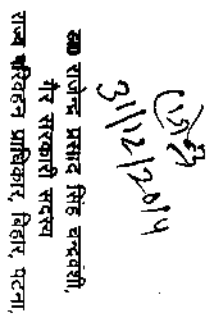 31/12/2014
ह0 राजेन्द्र प्रसाद सिंह चन्द्रवंशी,
गैर सरकारी सदस्य
राज्य परिवहन प्राधिकार, बिहार, पटना,